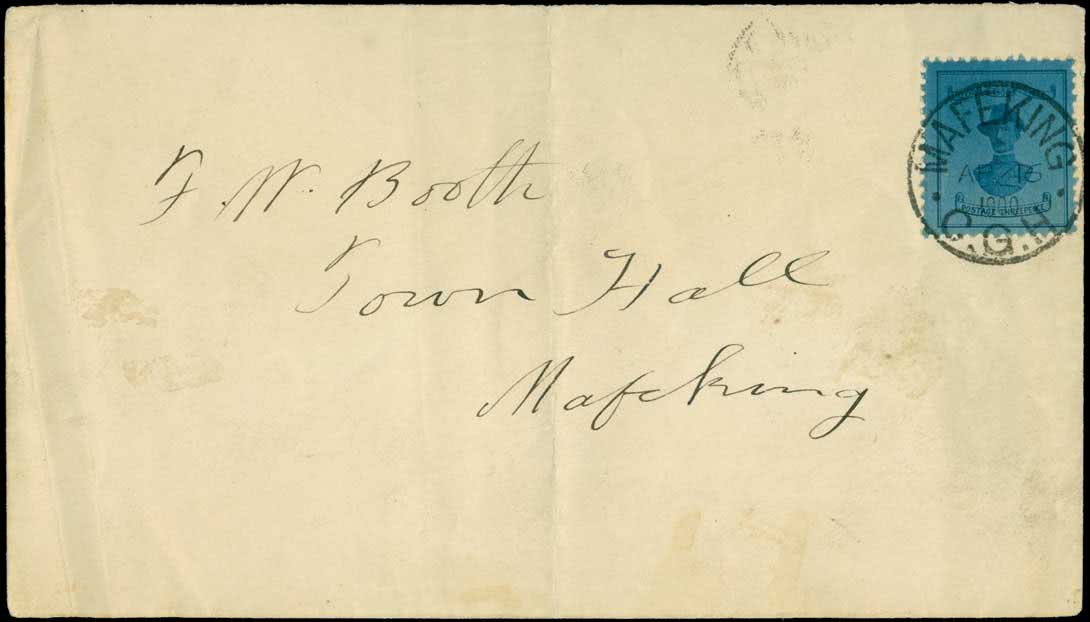 F. W. Booth
Town Hall
Mafeking
MAFEKING
1900
C.G.H.
POSTAGE THREEPENCE